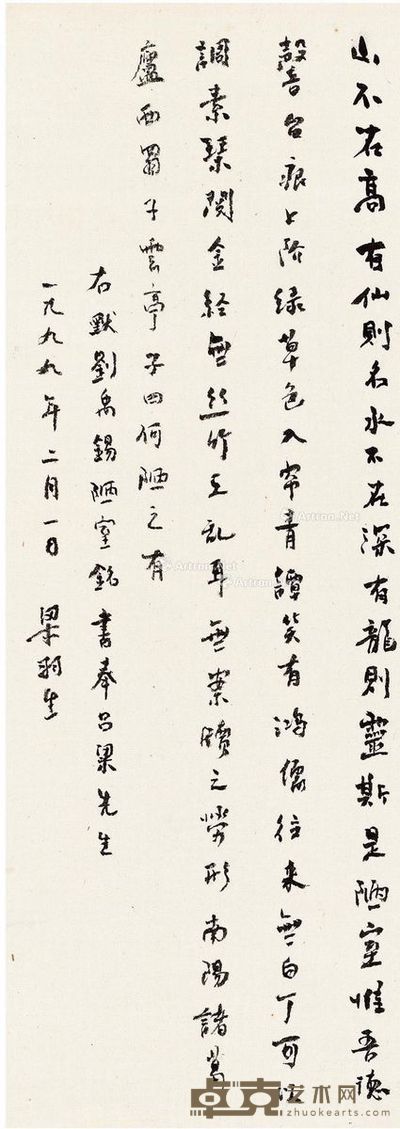 山不在高有仙則名水不在深有龍則靈斯是陋室惟吾德
馨苔痕上阶绿草色入帘青譚笑有鸿儒往来無白丁可以
調素琴閱金經無丝竹之乱耳無案牘之勞形南陽諸葛
廬西蜀子雲亭子曰何陋之有
右默劉禹錫陋室銘書奉吕梁先生
一九九九年二月一日 梁羽生
Artron.Net
Artron.Net
Artron.Net
卓克艺术网
zhuokearts.com